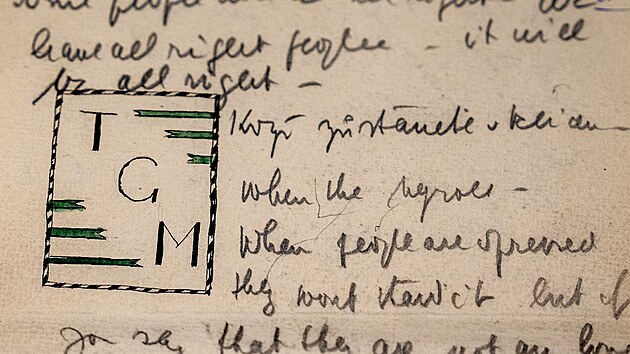 some people
have all right people – it will
be all right –
T G M
Když zůstanete v klidu
when the negroes –
when people are opressed
they wont stand it but if
you say that they are not an